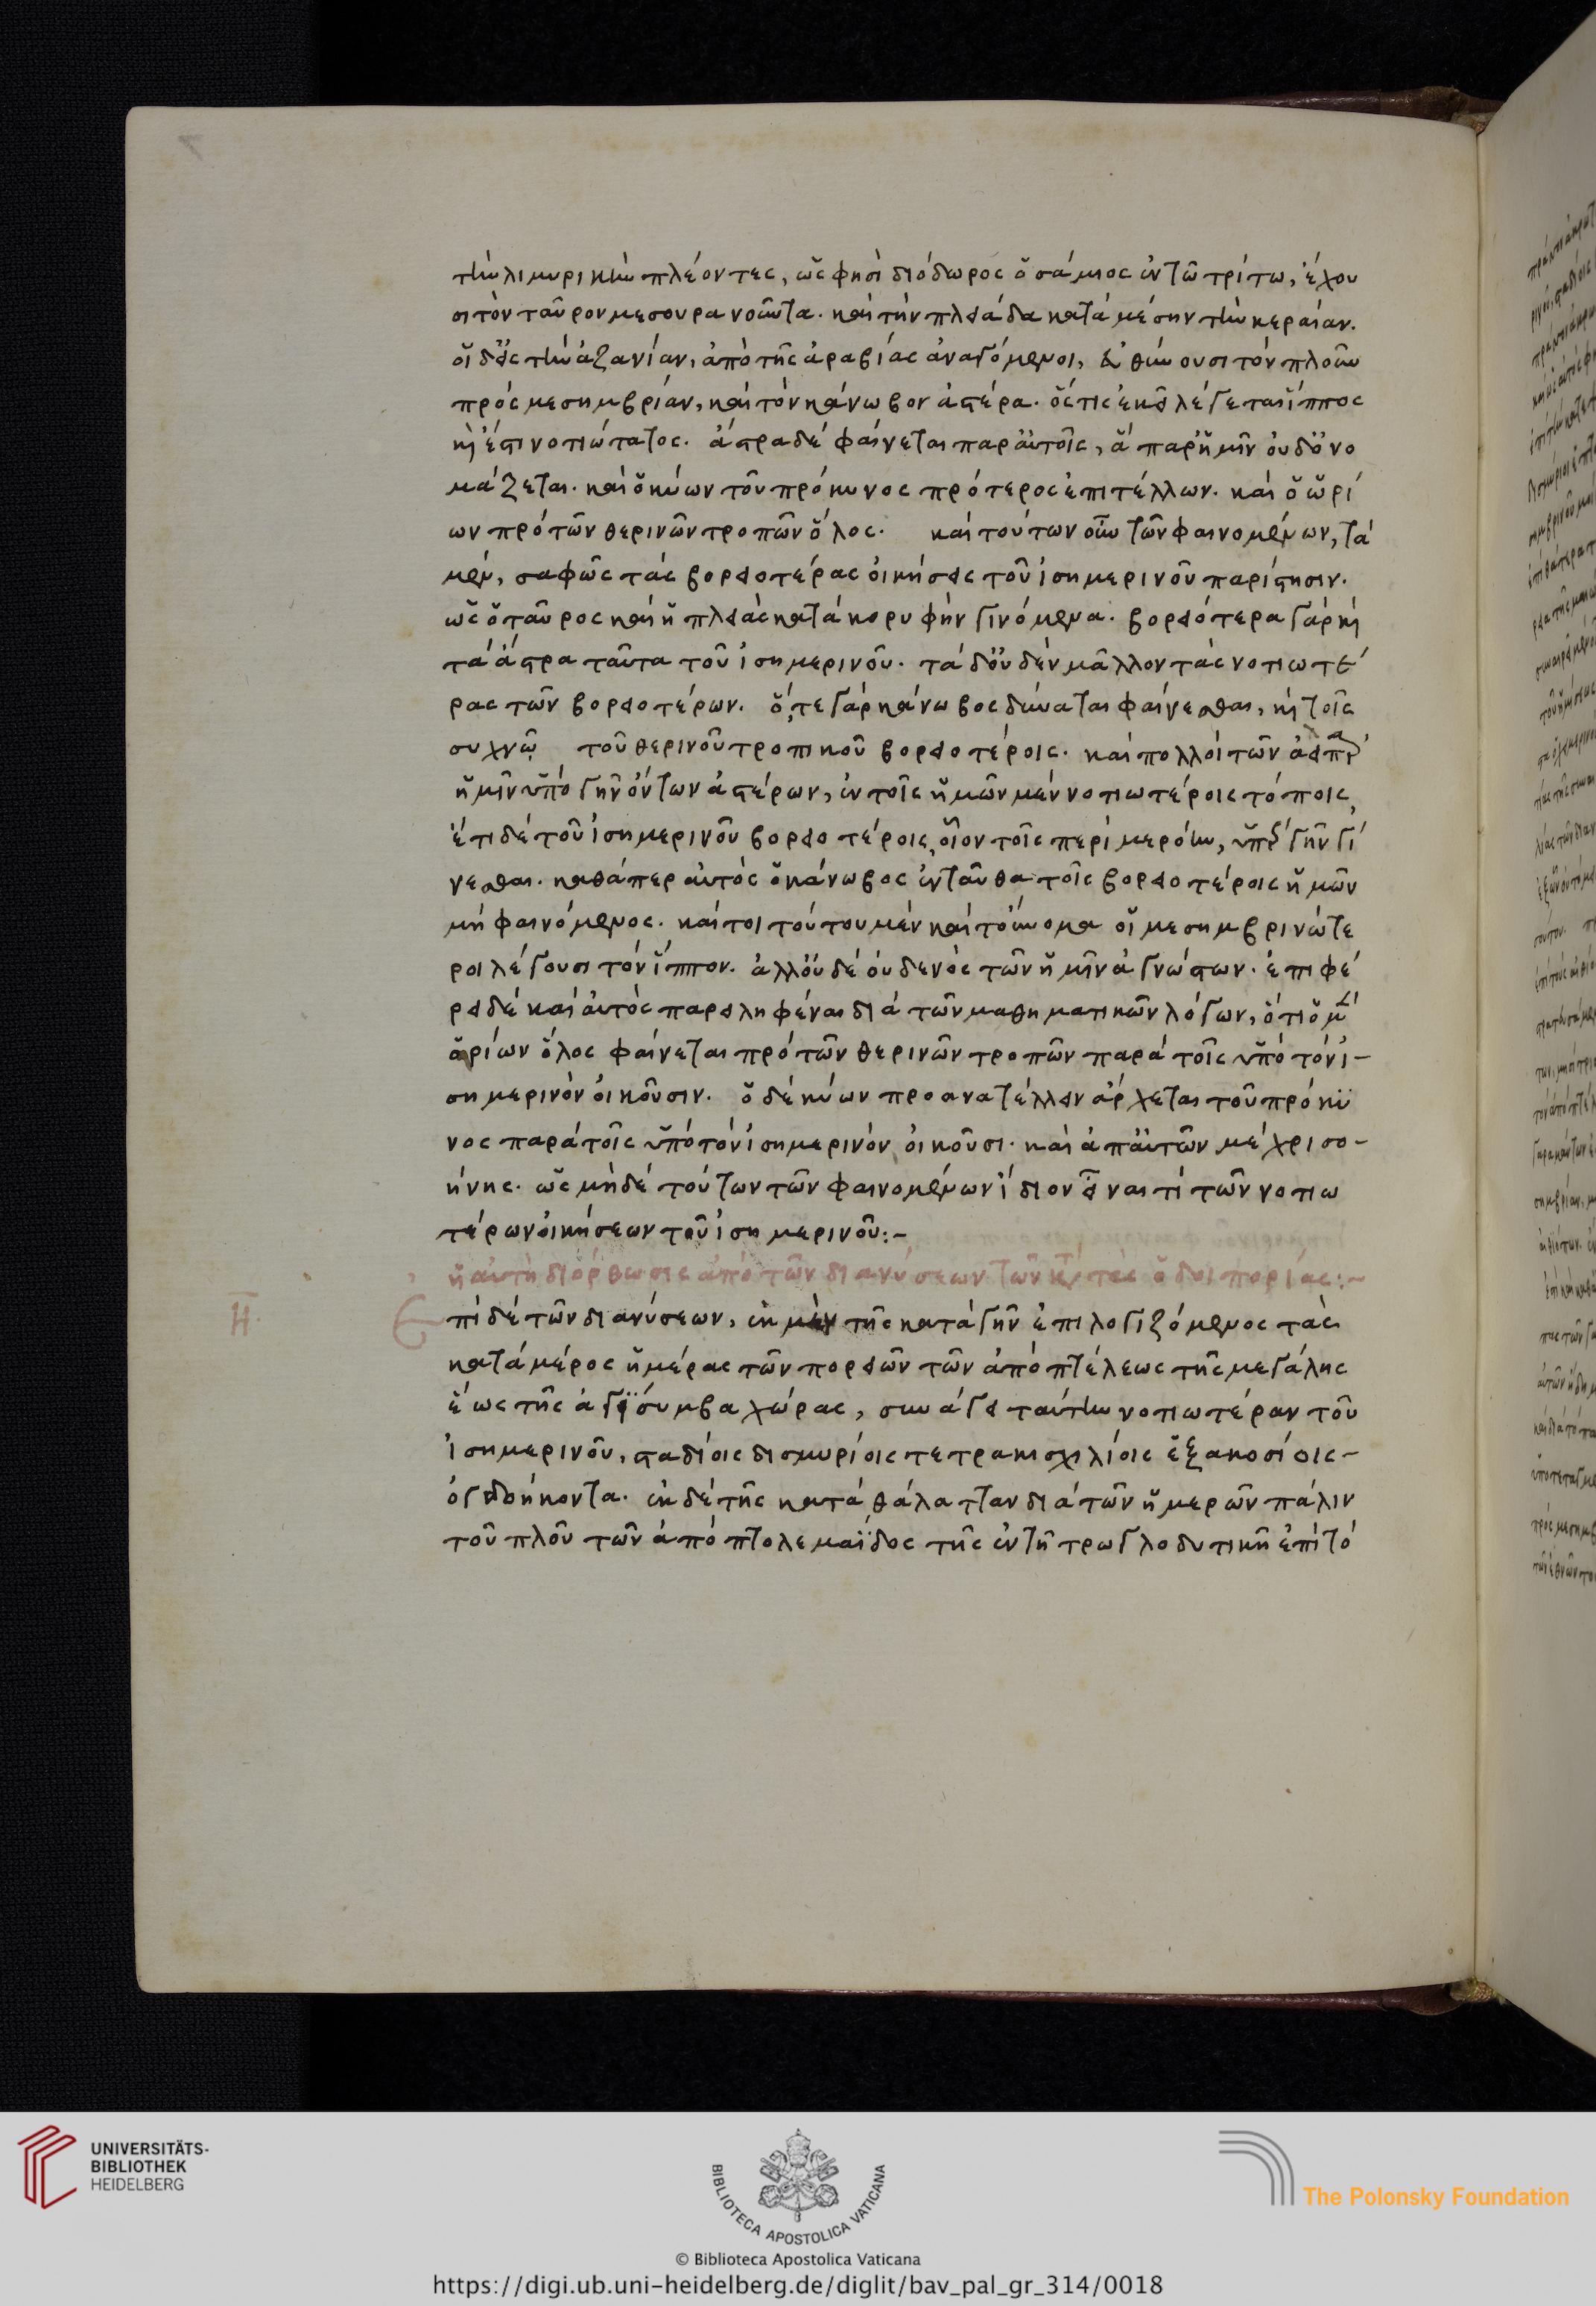 τὴν λιμυρικὴν πλέοντες, ὥς φησὶ διόδωρος ὁ σάμιος ἐν τῶ τρίτω, ἔχου
σι τὸν ταῦρον μεσουρανοῦντα. καὶ τὴν πλειάδα κατὰ μέσην τὴν κεραίαν.
οἱ δ' εἰς τὴν ἀζανίαν, ἀπὸ τῆς ἀραβίας ἀναγόμενοι, εὐθύνουσι τὸν πλοῦν
πρὸς μεσημβρίαν, καὶ τὸν κάνωβον ἀστέρα. ὅστις ἐκεῖ λέγεται ἵππος
καὶ ἔστι νοτιώτατος. ἄστρα δὲ φαίνεται παρ' αὐτοῖς, ἃ παρ' ἡμῖν οὐδ' ὀνο
μάζεται. καὶ ὁ κύων τοῦ πρόκυνος πρότερος ἐπιτέλλων. καὶ ὁ ὠρί
ων πρὸ τῶν θερινῶν τροπῶν ὅλος. καὶ τούτων οὖν τῶν φαινομένων, τὰ
μέν, σαφῶς τὰς βορειοτέρας οἰκήσεις τοῦ ἰσημερινοῦ παρίστησιν.
ὡς ὁ ταῦρος καὶ ἡ πλειὰς κατὰ κορυφὴν γινόμενα. βορειότερα γάρ καὶ
τὰ ἄστρα ταῦτα τοῦ ἰσημερινοῦ. τὰ δ' οὐδὲν μᾶλλον τὰς νοτιωτέ
ρας τῶν βορειοτέρων. ὅ,τε γὰρ κάνωβος δύναται φαίνεσθαι, καὶ τοῖς
συχνῶ τοῦ θερινοῦ τροπικοῦ βορειοτέροις. καὶ πολλοὶ τῶν ἀεὶ παρ'
ἡμῖν ὑπὸ γῆν ὄντων ἀστέρων, ἐν τοῖς ἡμῶν μὲν νοτιωτέροις τόποις,
ἔτι δὲ τοῦ ἰσημερινοῦ βορειοτέροις, οἷον τοῖς περὶ μερόην, ὑπὲρ γῆν γί
νεσθαι. καθάπερ αὐτὸς ὁ κάνωβος ἐνταῦθα τοῖς βορειοτέροις ἡμῶν
μὴ φαινόμενος. καίτοι τούτου μὲν καὶ τοὔνομα οἱ μεσημβρινώτε
ροι λέγουσι τὸν ἵππον. ἀλλ' οὐδὲ οὐδενὸς τῶν ἡμῖν ἀγνώστων. ἐπιφέ
ρει δὲ καὶ αὐτὸς παρειληφέναι διὰ τῶν μαθηματικῶν λόγων, ὅτι ὁ μὲν
ὠρίων ὅλος φαίνεται πρὸ τῶν θερινῶν τροπῶν παρὰ τοῖς ὑπὸ τὸν ἰ-
σημερινὸν οἰκοῦσιν. ὁ δὲ κύων προανατέλλειν ἄρχεται τοῦ πρόκυ
νος παρὰ τοῖς ὑπὸ τὸν ἰσημερινὸν οἰκοῦσι. καὶ ἀπ' αὐτῶν μέχρι σο-
ήνης. ὡς μηδὲ τούτων τῶν φαινομένων ἴδιον εἶναι τὶ τῶν νοτιω
τέρων οἰκήσεων τοῦ ἰσημερινοῦ:-
ἡ αὐτὴ διόρθωσις ἀπὸ τῶν διανύσεων τῶν κατὰ τὰς ὁδοιπορίας:~
Η. Ἐπὶ δὲ τῶν διανύσεων, ἐκ μὲν τῆς κατὰ γῆν ἐπιλογιζόμενος τὰς
κατὰ μέρος ἡμέρας τῶν πορειῶν τῶν ἀπὸ πτέλεως τῆς μεγάλης
ἕως τῆς ἀγισύμβα χώρας, συνάγει ταύτην νοτιωτέραν τοῦ
ἰσημερινοῦ, σταδίοις δισμυρίοις τετρακισχιλίοις ἑξακοσίοις-
ὀγδοήκοντα. ἐκ δὲ τῆς κατὰ θάλατταν διὰ τῶν ἡμερῶν πάλιν
τοῦ πλοῦ τῶν ἀπὸ πτολεμαΐδος τῆς ἐν τῆ τρωγλοδυτικῆ ἐπὶ τὸ
UNIVERSITÄTS-
BIBLIOTHEK
HEIDELBERG
BIBLIOTECA APOSTOLICA VATICANA
© Biblioteca Apostolica Vaticana
The Polonsky Foundation
https://digi.ub.uni-heidelberg.de/diglit/bav_pal_gr_314/0018